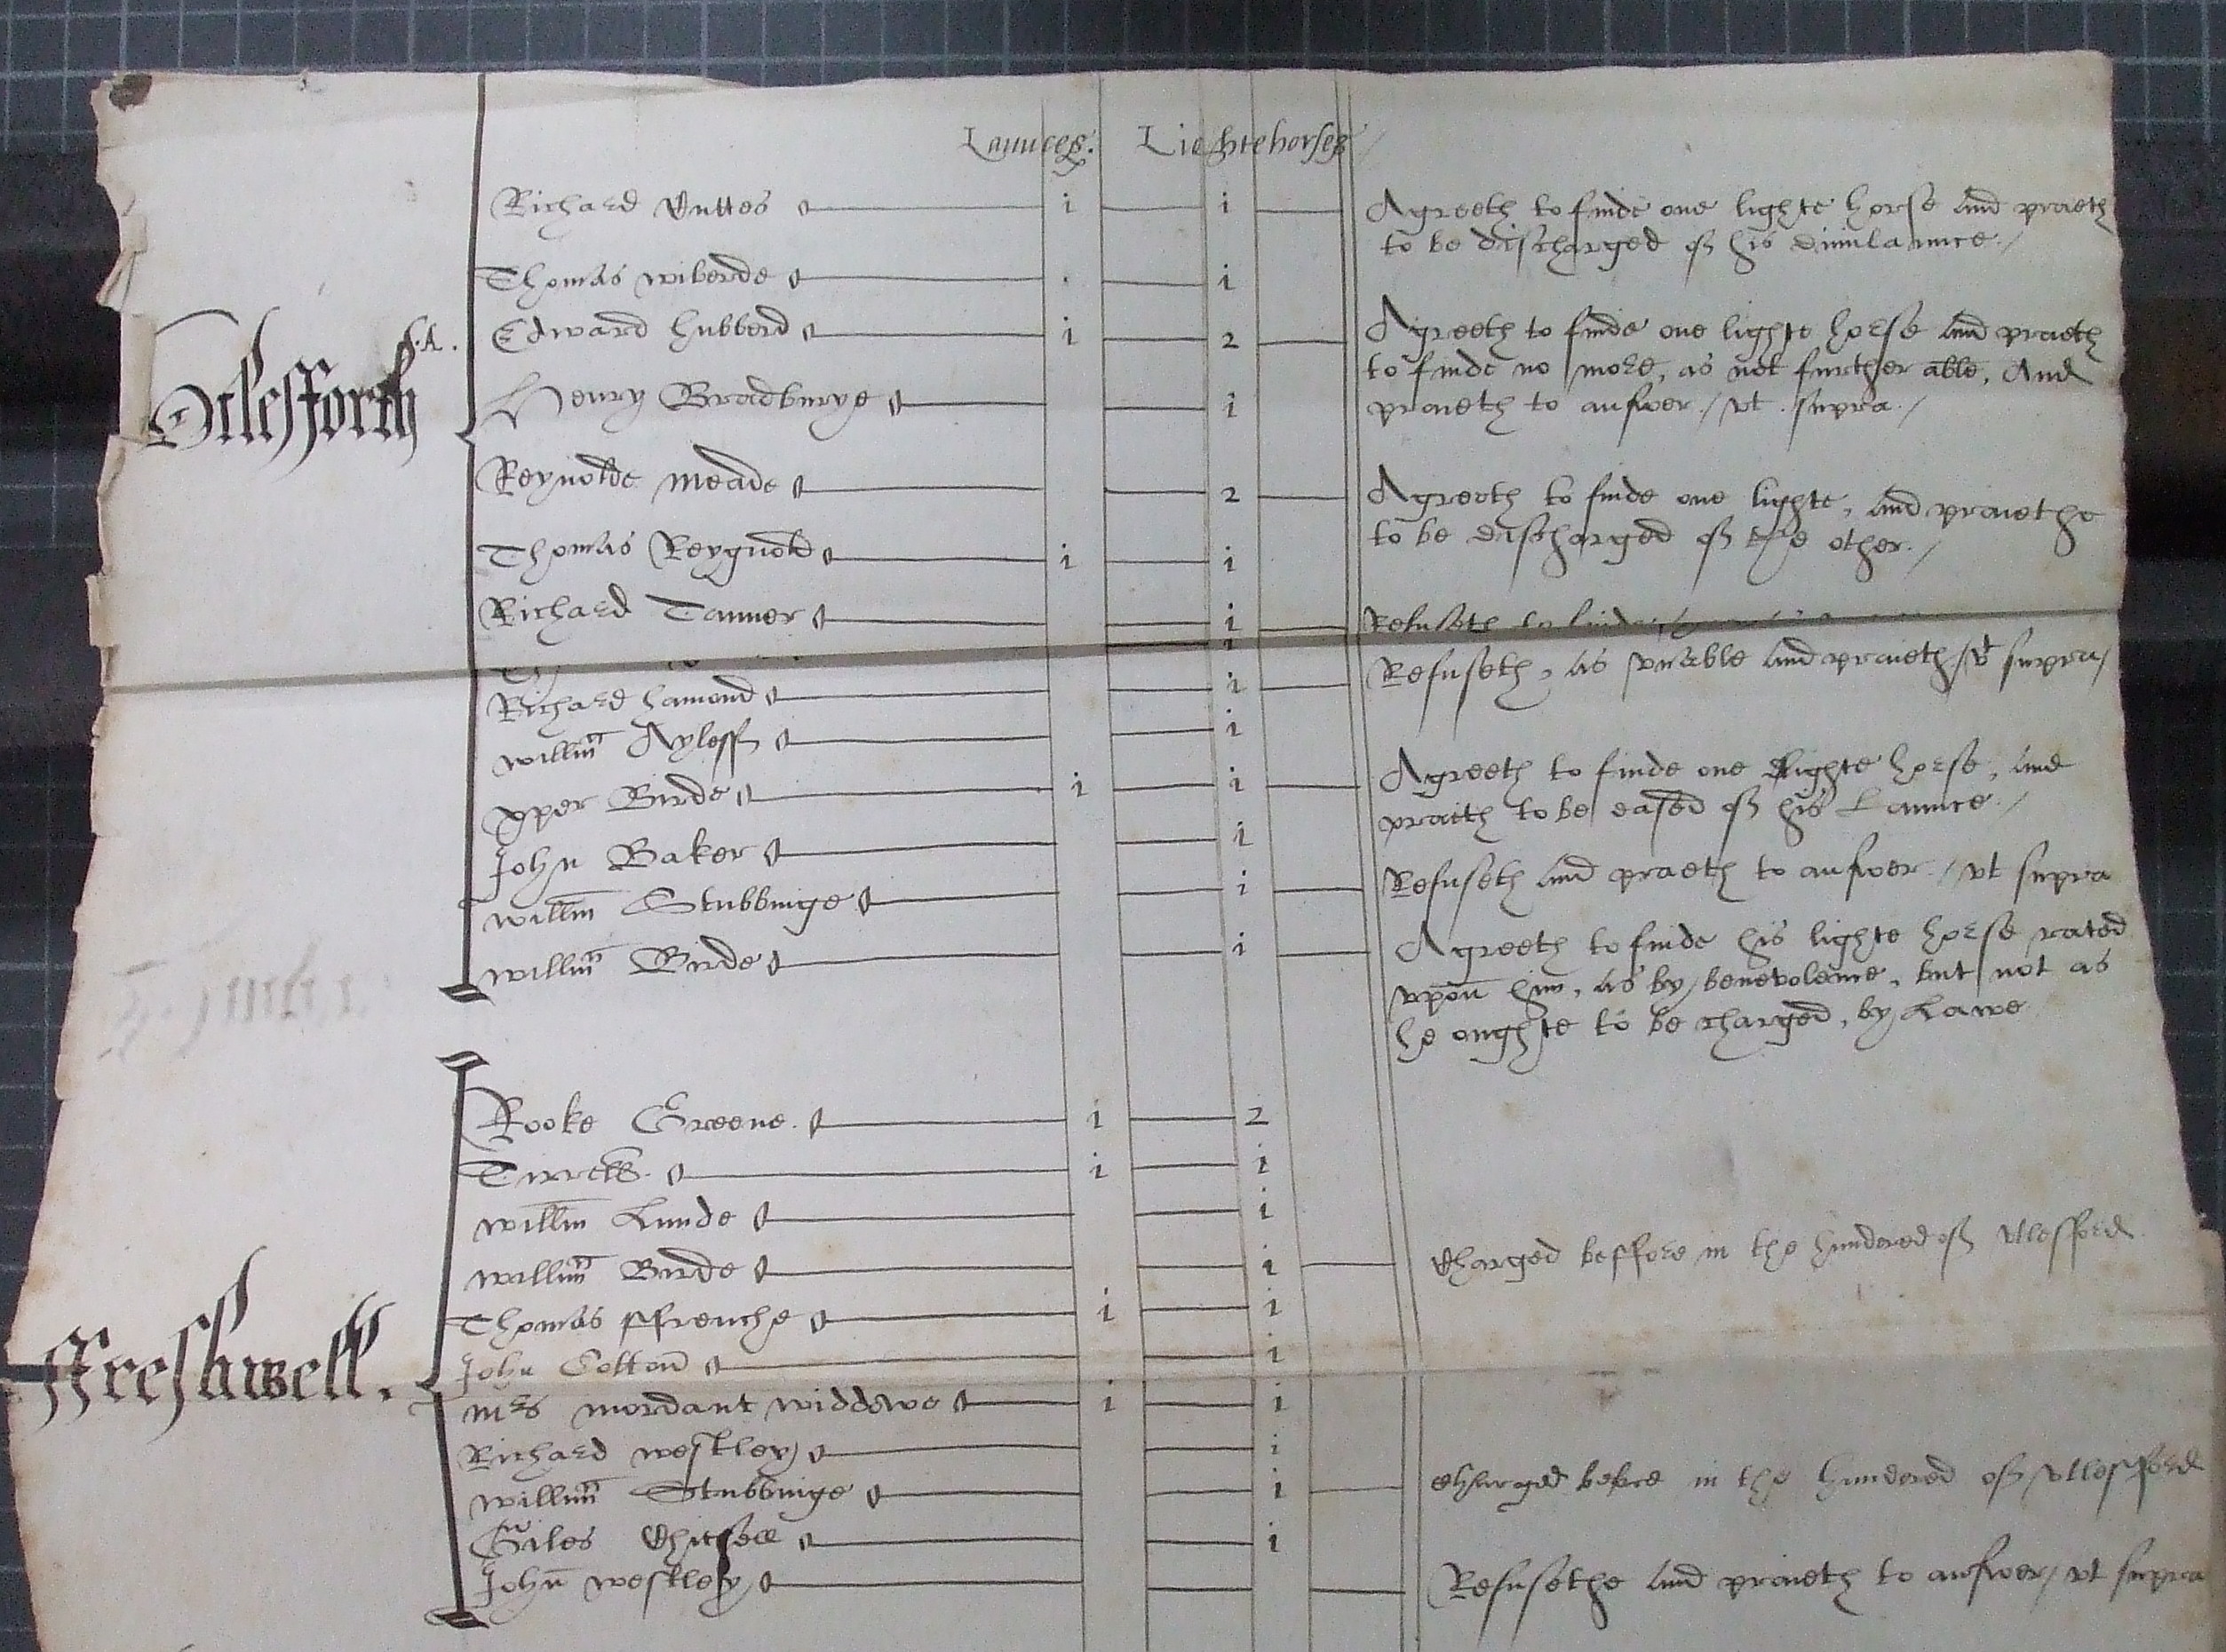 Launces. Lightehorses
Richard Cuttes i i Agreeth to finde one lighte horse and praeth
to be discharged of his dimilaunce./
Thomas wiberde . i
Edward hubberd i 2 Agreeth to finde one lighte horse and praeth
to finde no more, as not further able, And
Henry Bradburye i praieth to answer./ vt . supra./
Vtlesforth
Reynolde meade 2 Agreeth to finde one lighte, and praiethe
to be discharged of the other./
Thomas Reygnold i i
Richard Tanner i Refuseth to finde
i Refuseth, as vnable and praieth/ vt supra/
Richard hamond i
willm Ayleff i
i i Agreeth to finde one lighte horse, and
Birde praith to be eased of his Launce./
John Baker i
willm Stubbinge i Refuseth and praeth to answer./ vt supra
willm Birde i Agreeth to finde his lighte horse rated
vpon him, as by benevolence, but not as
he oughte to be charged, by Lawe
Rooke Greene. i 2
Tirrell. i i
willm Lunde i
willm Birde i Charged beffore in the hundered of vtlesfford
Thomas ffrenche i i
John Cotton i
ffreshwell.
mrs mordant widdowe i i
Richard westley i
willm Stubbinge i charged before in the hundered of vtlesford
Giles i
John westley Refusethe and praieth to answer/ vt supra